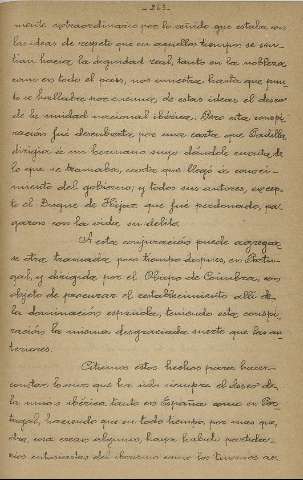 - 263 -
mente extraordinario por lo reñido que estaba con
las ideas de respeto que en aquellos tiempos se sen-
tían hacia la dignidad real, tanto en la nobleza
como en todo el pais, nos muestra hasta que pun-
to se hallaba por encima de estas ideas el deseo
de la unidad nacional ibérica. Pero esta conspi-
ración fué descubierta, por una carta que Padilla
dirigía á un hermano suyo dándole cuenta de
lo que se tramaba, carta que llegó á conoci-
miento del gobierno; y todos sus autores, excep-
to el Duque de Hijar que fué perdonado, pa-
garon con la vida su delito.
A esta conspiración puede agregar-
se otra, tramada poco tiempo despues, en Portu-
gal, y dirigida por el Obispo de Coimbra, con
objeto de procurar el establecimiento allí de
la dominación española, teniendo esta conspi-
ración la misma desgraciada suerte que las an-
teriores.
Citamos estos hechos para hacer
constar lo mas que ha sido siempre el deseo de
la unión ibérica tanto en España como en Por-
tugal, haciendo que en todo tiempo, por mas que,
otra cosa crean algunos, haya habido partida-
rios entusiastas de